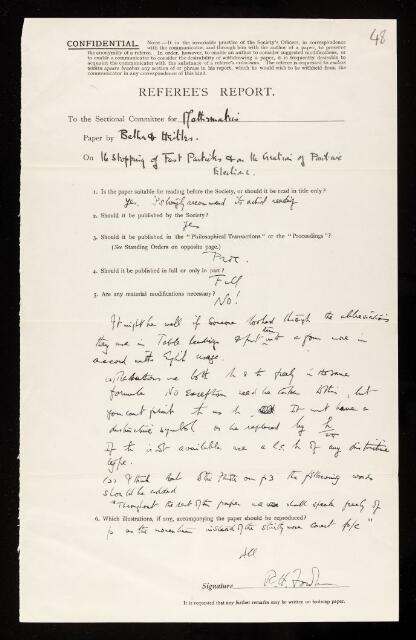 48
CONFIDENTIAL. NOTE.—It is the invariable practice of the Society's Officers, in correspondence
with the communicator, and through him with the author of a paper, to preserve
the anonymity of a referee. In order, however, to enable an author to consider suggested modifications, or
to enable a communicator to consider the desirability of withdrawing a paper, it is frequently desirable to
acquaint the communicator with the substance of a referee's criticisms. The referee is requested to
any section of or phrase in his report, which he would wish to be withheld from the
communicator in any correspondence of this kind.
REFEREE'S REPORT.
To the Sectional Committee for Mathematics
Paper by Bethe & Heitler.
On the Stopping of Fast Particles & on the Creation of Positive
Electrons.
1. Is the paper suitable for reading before the Society, or should it be read in title only?
Yes. I strongly recommend its actual reading
2. Should it be published by the Society?
Yes
3. Should it be published in the "Philosophical Transactions" or the "Proceedings"?
(See Standing Orders on opposite page.)
Proc.
4. Should it be published in full or only in part?
Full
5. Are any material modifications necessary?
No!
It might be well if someone looked through the abbreviations
they use in Table headings & put into a form more in
accord with English usage.
(2) The authors use both h & to freely in the same
formula. No exception need be taken to this, but
you can't print as h. It must have a
distinctive symbol or be replaced by h/2π
If this is not available use a l.c. h of any distinctive
type.
(3) I think that after on p 3 the following words
should be added
"Throughout the rest of the paper we shall speak freely of
6. Which illustrations, if any, accompanying the paper should be reproduced?
p as the momentum instead of the strictly more correct p/c"
All
Signature R. H. Fowler
It is requested that any further remarks may be written on foolscap paper.